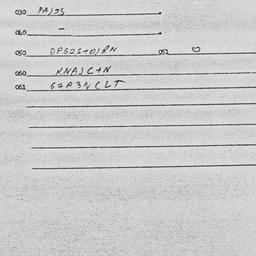 030 PAJ35
040 -
050 OPG2S+OJRN 052 O
060 NNAJC+N
061 62A3NCLT